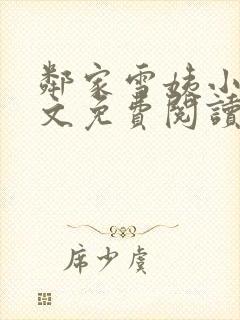 鄰家雪姨小
文免費閱讀
席少虞